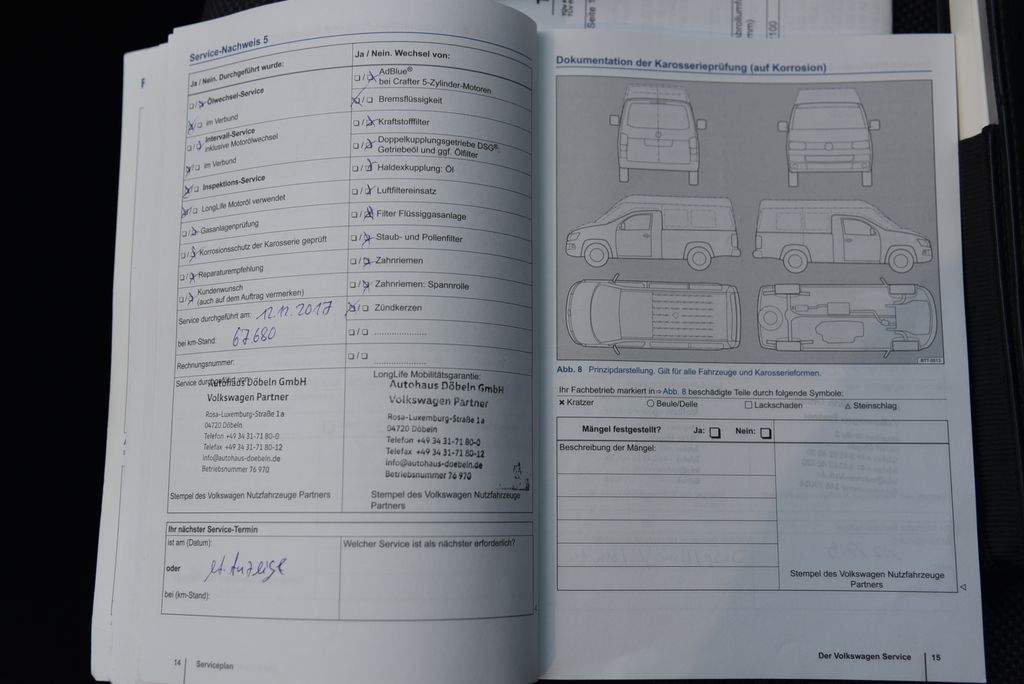 Seite 1
/100
Service-Nachweis 5
Ja / Nein. Durchgeführt wurde:
Ölwechsel-Service
im Verbund
Intervall-Service
inklusive Motorölwechsel
im Verbund
Inspektions-Service
LongLife Motoröl verwendet
Gasanlagenprüfung
Korrosionsschutz der Karosserie geprüft
Reparaturempfehlung
Kundenwunsch
(auch auf dem Auftrag vermerken)
Service durchgeführt am: 12.12.2017
bei km-Stand: 67680
Rechnungsnummer:
Service durchgeführt von:
Autohaus Döbeln GmbH
Volkswagen Partner
Rosa-Luxemburg-Straße 1a
04720 Döbeln
Telefon +49 34 31-71 80-0
Telefax +49 34 31-71 80-12
info@autohaus-doebeln.de
Betriebsnummer 76 970
Stempel des Volkswagen Nutzfahrzeuge Partners
Ja / Nein. Wechsel von:
AdBlue®
bei Crafter 5-Zylinder-Motoren
Bremsflüssigkeit
Kraftstofffilter
Doppelkupplungsgetriebe DSG®:
Getriebeöl und ggf. Ölfilter
Haldexkupplung: Öl
Luftfiltereinsatz
Filter Flüssiggasanlage
Staub- und Pollenfilter
Zahnriemen
Zahnriemen: Spannrolle
Zündkerzen
LongLife Mobilitätsgarantie:
Autohaus Döbeln GmbH
Volkswagen Partner
Rosa-Luxemburg-Straße 1a
04720 Döbeln
Telefon +49 34 31-71 80-0
Telefax +49 34 31-71 80-12
info@autohaus-doebeln.de
Betriebsnummer 76 970
Stempel des Volkswagen Nutzfahrzeuge
Partners
Ihr nächster Service-Termin
ist am (Datum):
oder
lt. Anzeige
bei (km-Stand):
Welcher Service ist als nächster erforderlich?
14 Serviceplan
Dokumentation der Karosserieprüfung (auf Korrosion)
BTT-0513
Abb. 8 Prinzipdarstellung. Gilt für alle Fahrzeuge und Karosserieformen.
Ihr Fachbetrieb markiert in ⇒ Abb. 8 beschädigte Teile durch folgende Symbole:
× Kratzer ○ Beule/Delle □ Lackschaden △ Steinschlag
Mängel festgestellt? Ja: Nein:
Beschreibung der Mängel:
Stempel des Volkswagen Nutzfahrzeuge
Partners
Der Volkswagen Service 15